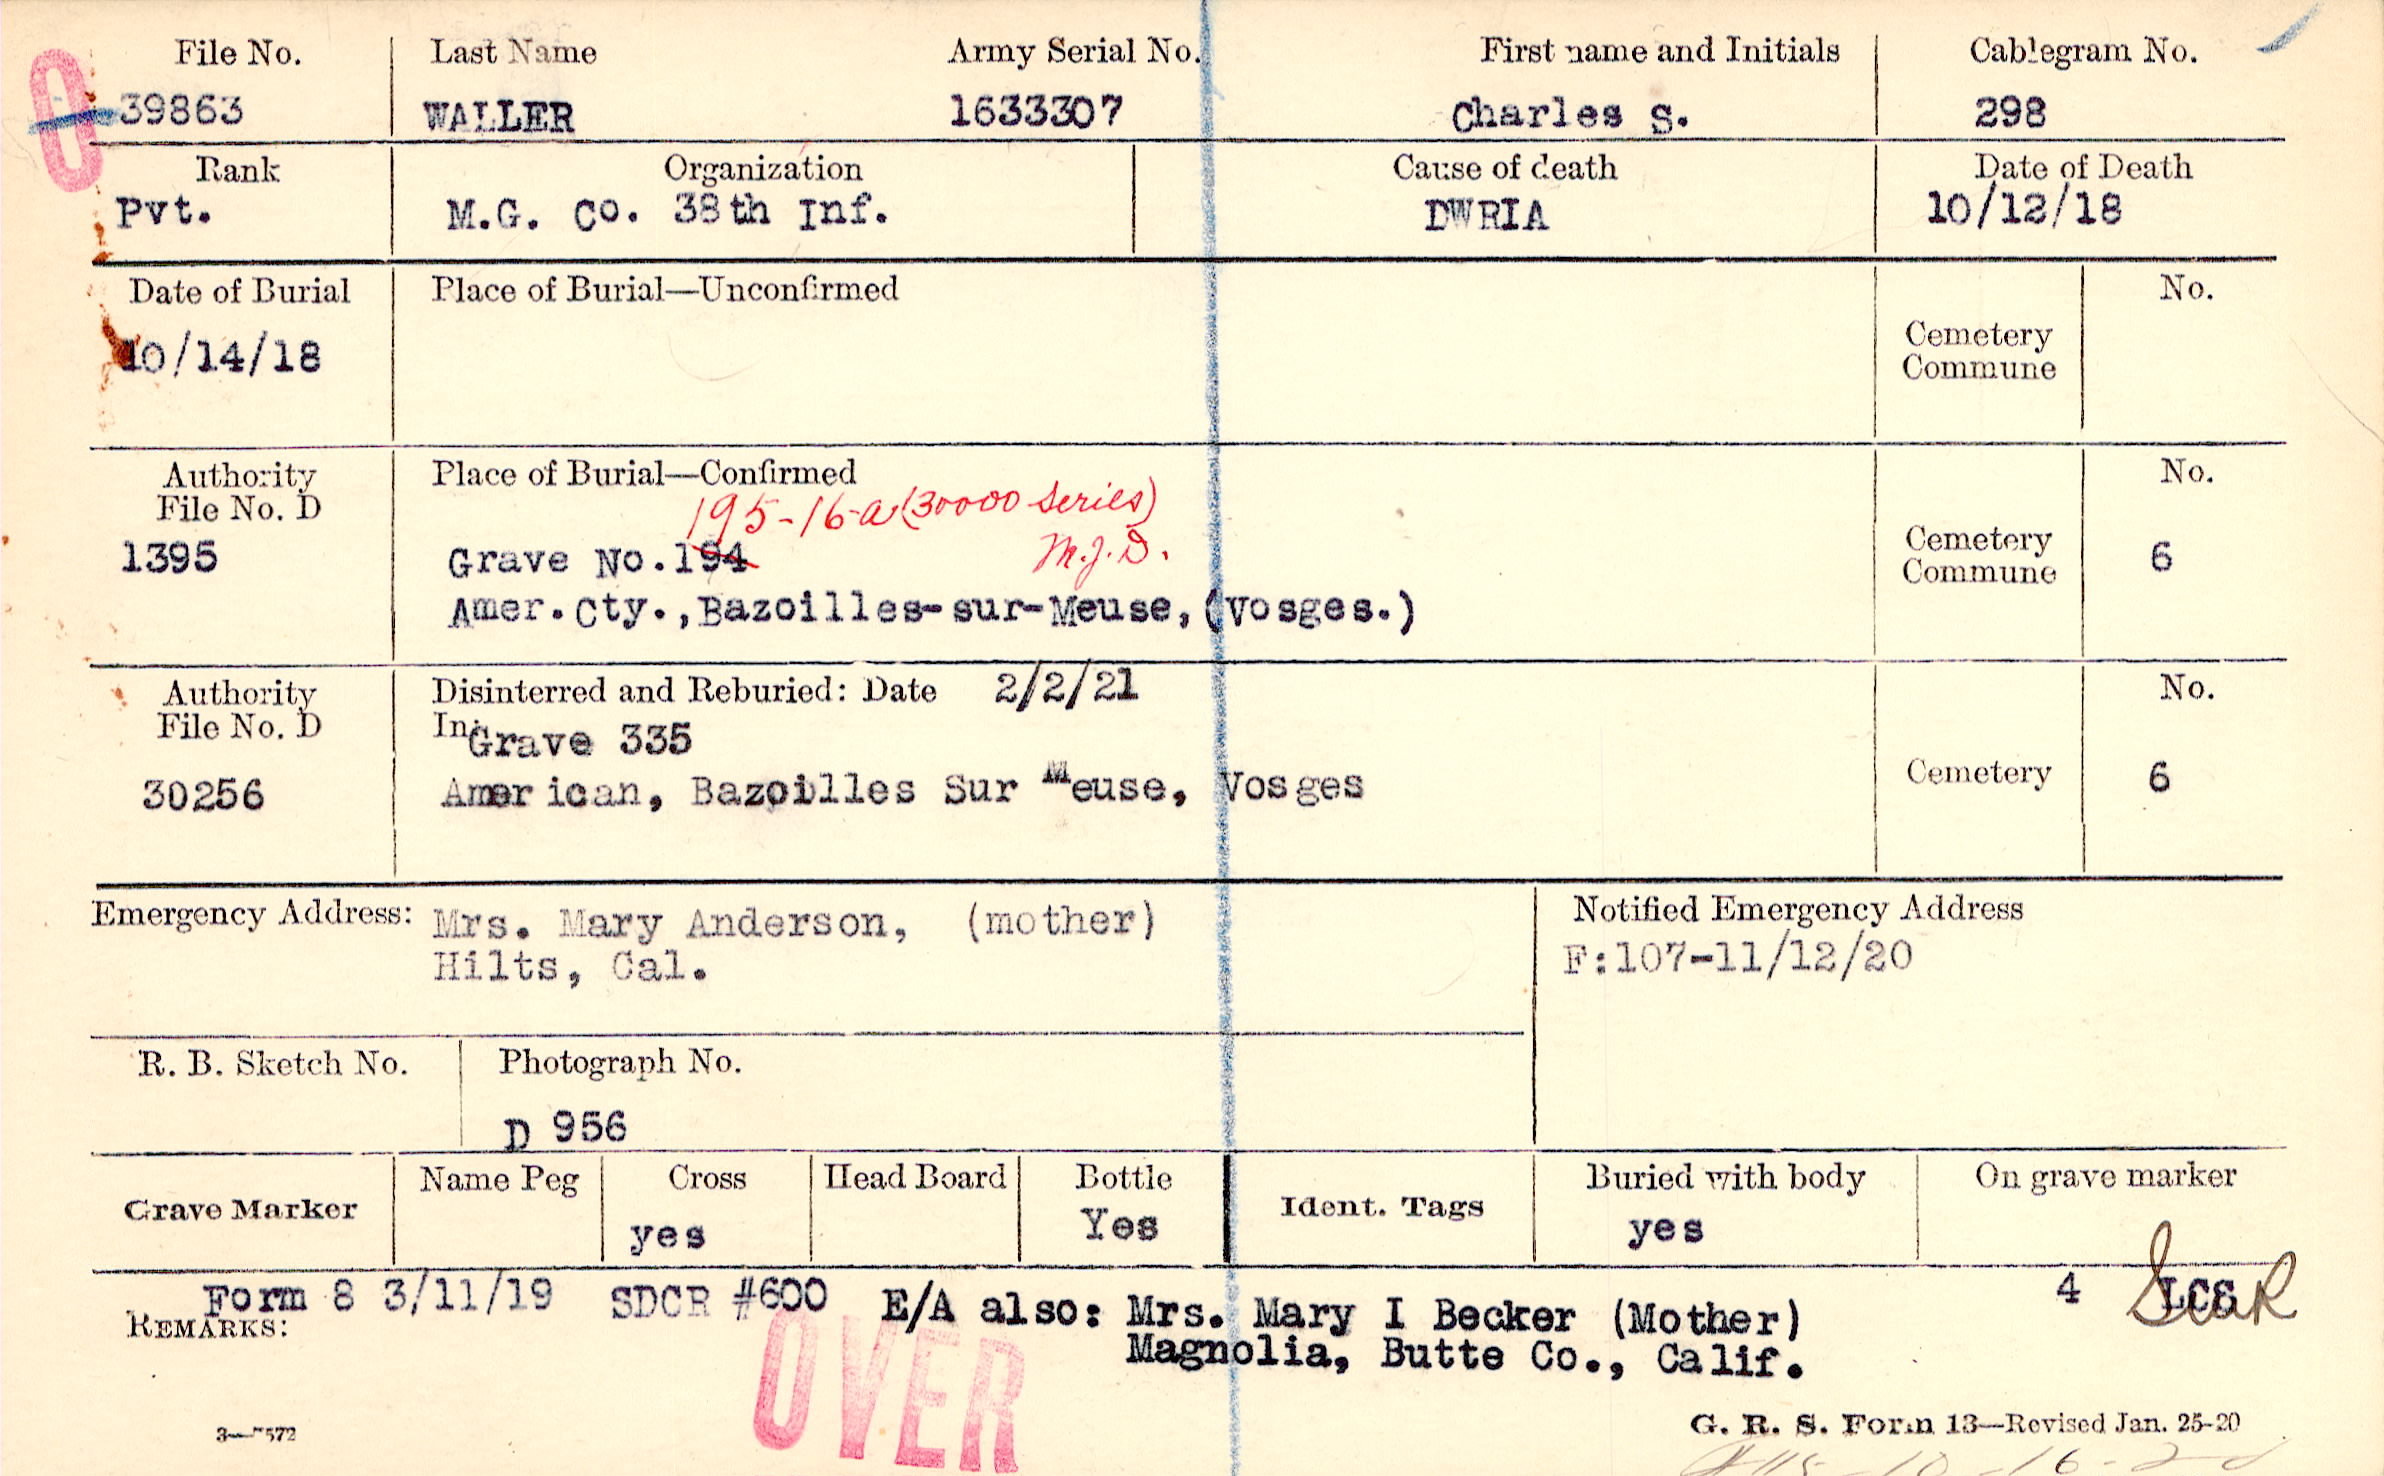 O
File No. Last Name Army Serial No. First name and Initials Cablegram No.
39863 WALLER 1633307 Charles S. 298
Rank Organization Cause of death Date of Death
Pvt. M.G. Co. 38th Inf. DWRIA 10/12/18
Date of Burial Place of Burial—Unconfirmed No.
10/14/18 Cemetery
Commune
Authority Place of Burial—Confirmed No.
File No. D 195-16-a (30000 Series)
1395 Grave No.194 M.J.D. Cemetery
Commune 6
Amer.Cty.,Bazoilles-sur-Meuse,(Vosges.)
Authority Disinterred and Reburied: Date 2/2/21 No.
File No. D In: Grave 335
30256 American, Bazoilles Sur Meuse, Vosges Cemetery 6
Emergency Address: Mrs. Mary Anderson, (mother) Notified Emergency Address
Hilts, Cal. F:107-11/12/20
R. B. Sketch No. Photograph No.
D 956
Grave Marker Name Peg Cross Head Board Bottle Ident. Tags Buried with body On grave marker
yes Yes yes
Form 8 3/11/19 SDCR #600 E/A also: Mrs. Mary I Becker (Mother) 4 LCS
REMARKS: Magnolia, Butte Co., Calif.
OVER
G. R. S. Form 13—Revised Jan. 25-20